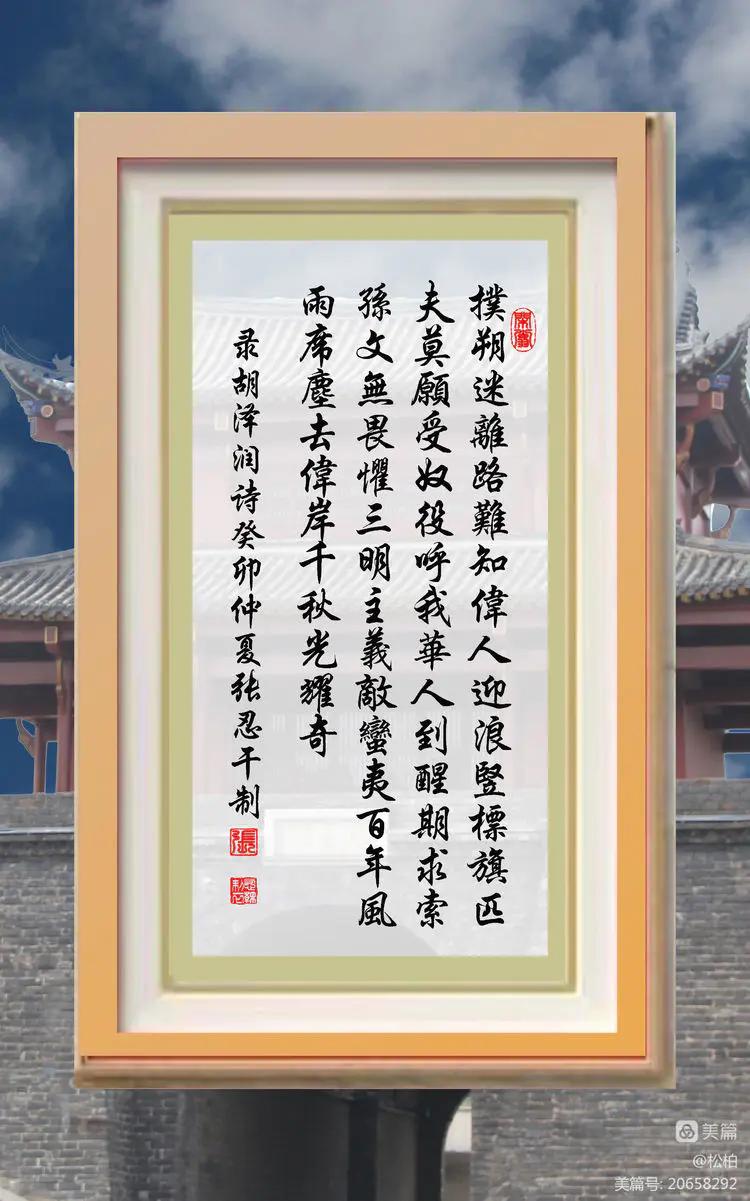 撲朔迷離路難知偉人迎浪竪標旗匹
夫莫願受奴役呼我華人到醒期求索
孫文無畏懼三明主義敵蠻夷百年風
雨席塵去偉岸千秋光耀奇
录胡泽润诗癸卯仲夏张忍干制
張
美篇
@松柏
美篇号: 20658292